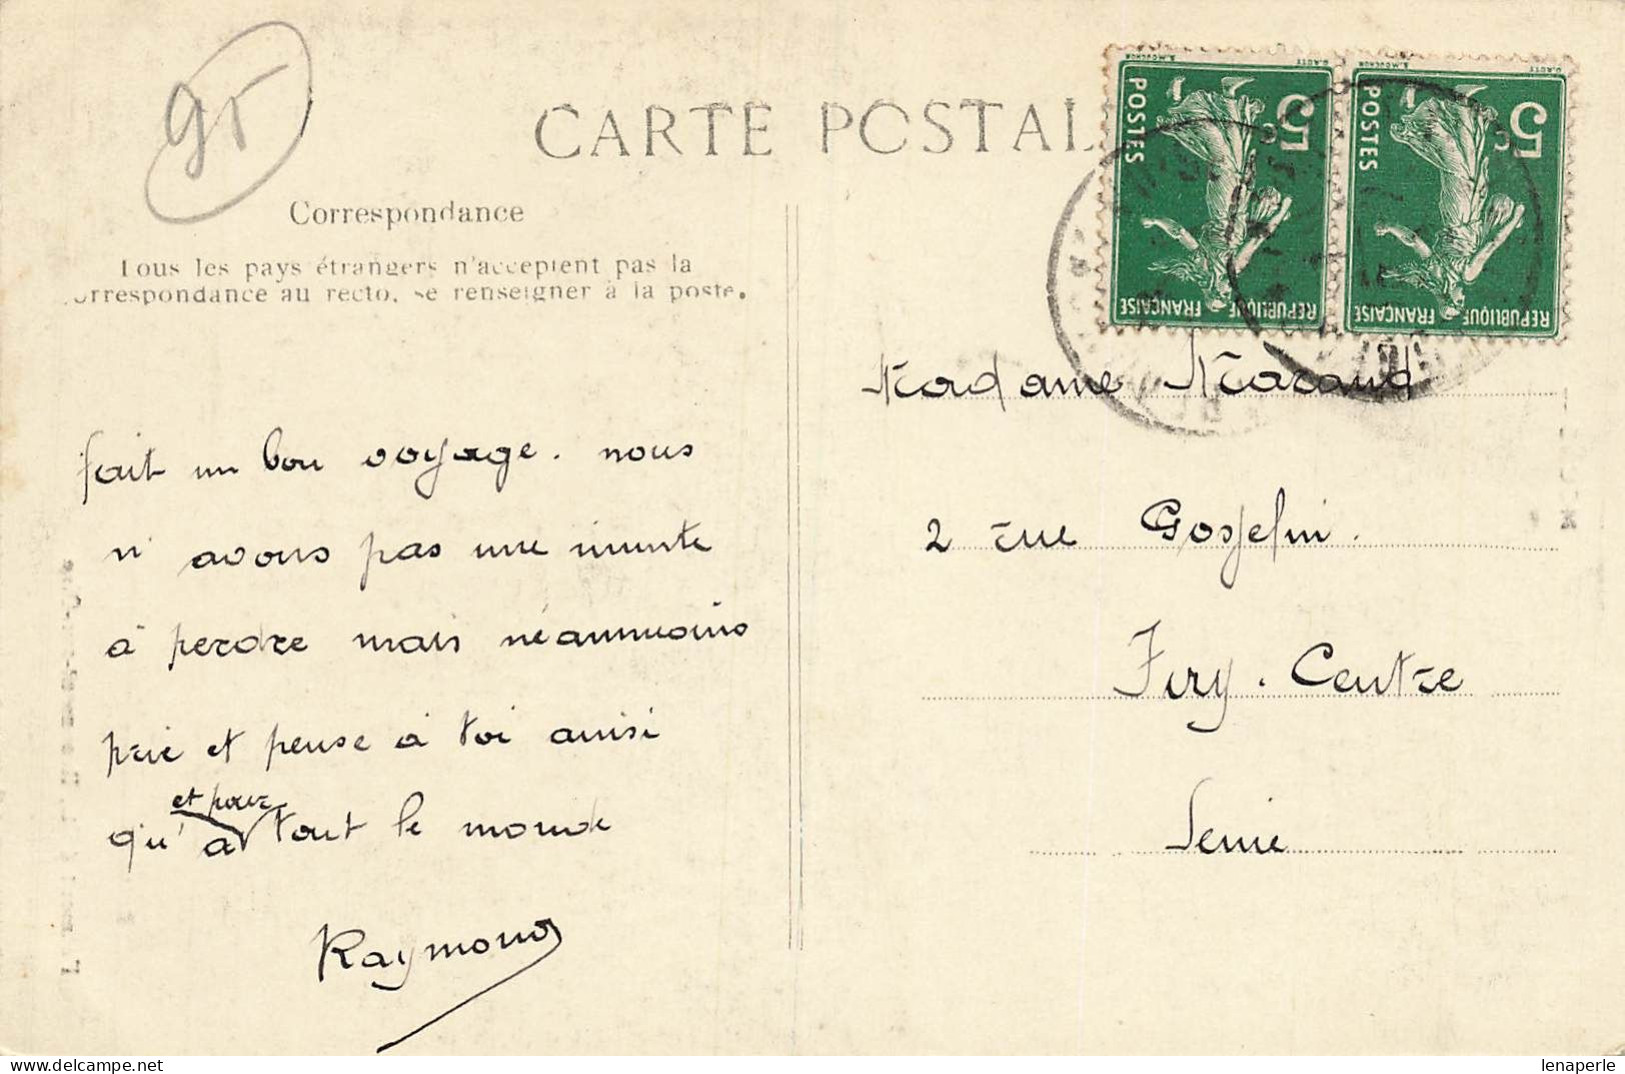 95
CARTE POSTAL
Correspondance
Tous les pays étrangers n'acceptent pas la
correspondance au recto, se renseigner à la poste.
5c
POSTES
RÉPUBLIQUE FRANÇAISE
5c
POSTES
RÉPUBLIQUE FRANÇAISE
fait un bon voyage. nous
n'avons pas une minute
à perdre mais néanmoins
prie et pense à toi ainsi
et pour
qu'à tout le monde
Raymond
Madame Maraud
2 rue Gosselin.
Ivry. Centre
Seine
lenaperle